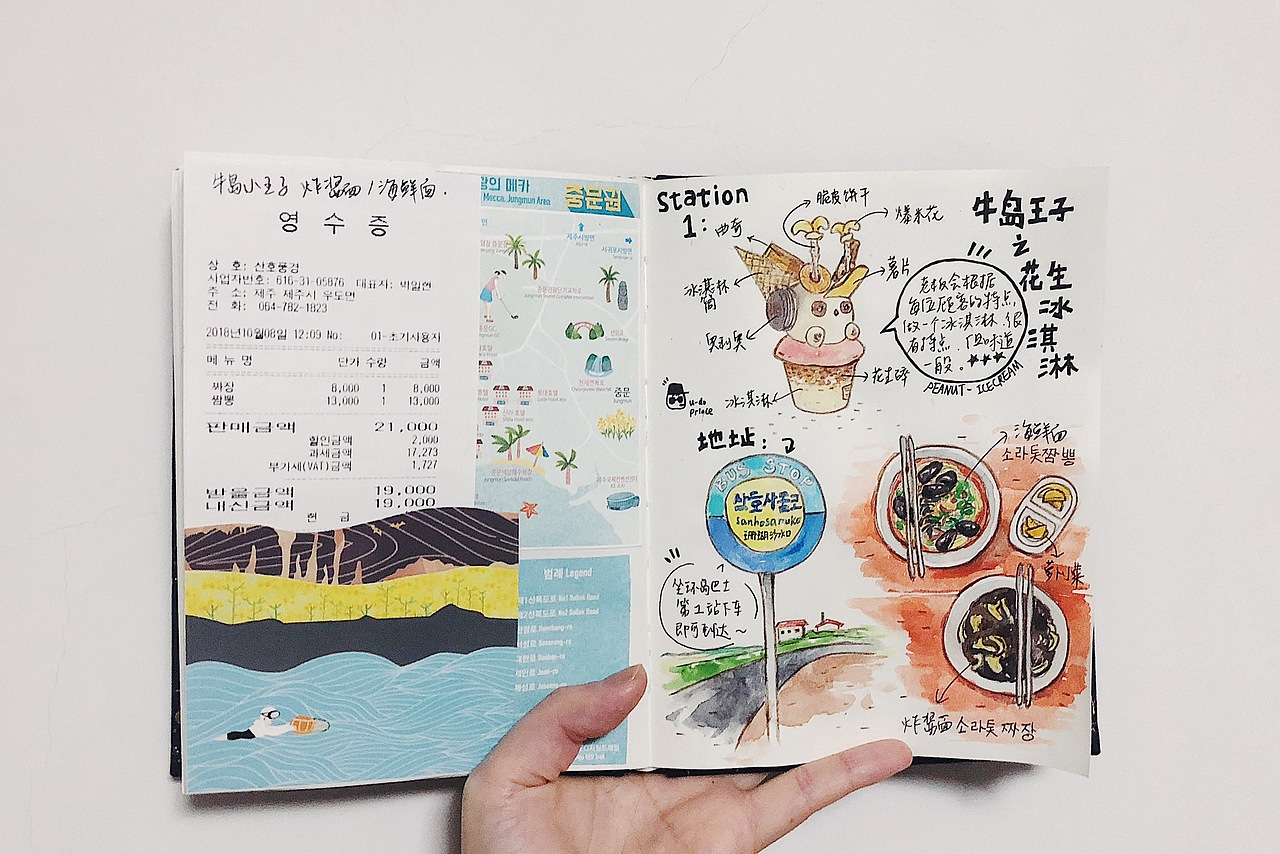 牛岛小王子 炸酱面 / 海鲜面.
영 수 증
상 호: 산호풍경
사업자번호: 616-31-05876 대표자: 박일현
주 소: 제주 제주시 우도면
전 화: 064-782-1823
2018년10월08일 12:09 No: 01-초기사용자
메 뉴 명 단가 수량 금액
짜장 8,000 1 8,000
짬뽕 13,000 1 13,000
판매금액 21,000
할인금액 2,000
과세금액 17,273
부가세(VAT)금액 1,727
받을금액 19,000
대신금액 19,000
현 금
의 메카
Mecca, Jungmun Area
중문권
제주시방면
서귀포시방면
중문관광단지교차로
중문
Jungmun
범례 Legend
Station
1:
曲奇
脆皮饼干
爆米花
薯片
冰淇淋
筒
奥利奥
花生碎
冰淇淋
U-do
Prince
牛岛王子
之
花生
冰
淇
淋
老板会根据
每位顾客的特点,
做一个冰淇淋.很
有特点.但味道
一般。
PEANUT-ICECREAM
地址:
BUS STOP
산호사줄코
sanhosamuko
珊瑚沙水口
坐环岛巴士
第2站下车
即可到达~
海鲜面
소라톳짬뽕
炸酱面 소라톳짜장